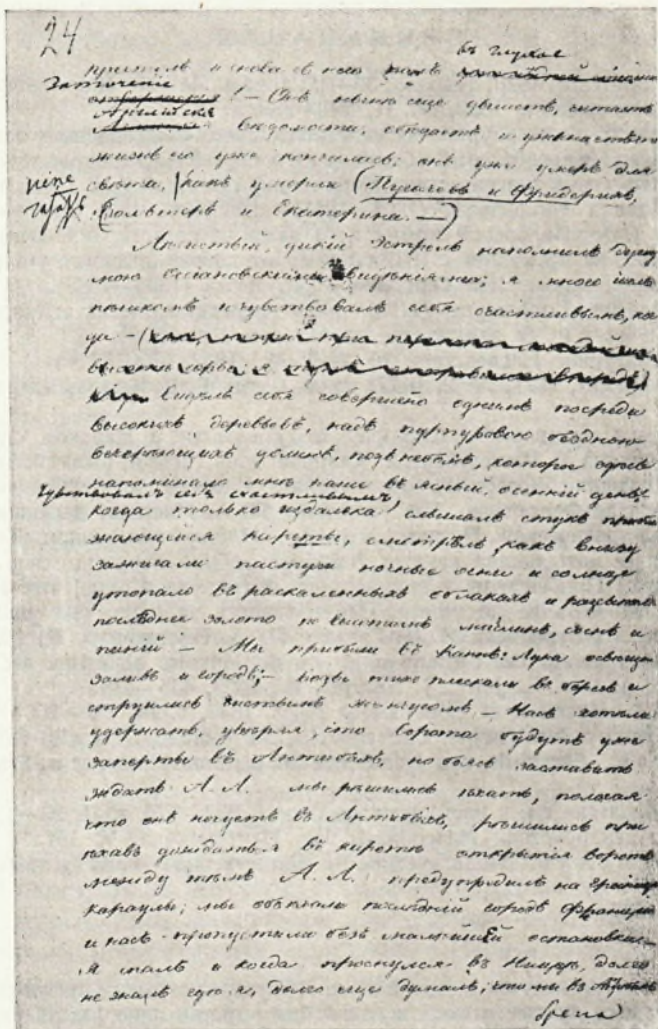 24
въ глухое
пристань и снова въ него
Заточеніе
! — Онъ еще дышетъ, читаетъ
Англійскія
вѣдомости, обѣдаетъ и
жизнь его уже кончилась; онъ уже умеръ для
свѣта, какъ умерли (Пугачевъ и Фридерихъ,
Вольтеръ и Екатерина. —)
дикій Эстрель наполнилъ душу
мою Оссіановскими видѣніями; я много шелъ
пѣшкомъ и чувствовалъ себя счастливымъ, ког
да —
видѣлъ себя совершенно однимъ посреди
высокихъ деревьевъ, надъ пурпуровою бездною
вечерѣющихъ долинъ, подъ небомъ, которое
напоминало мнѣ наше въ ясный, осенній день;
чувствовалъ себя счастливымъ,
когда только издалека слышалъ стукъ прибли
жающейся кареты, смотрѣлъ, какъ внизу
зажигали пастухи ночные огни и солнце
утопало въ раскаленныхъ облакахъ и
последнее золото по высотамъ маслинъ, сосенъ и
пиній — Мы прибыли въ Каннъ: Луна
заливъ и городъ; — тихо плескали въ берегъ и
струились чистымъ жемчугомъ — Насъ хотѣли
удержать, увѣряя, что ворота будутъ уже
заперты въ Антибахъ, но боясь заставить
ждать А. Л. мы рѣшились ѣхать, полагая
что онъ ночуетъ въ Антибахъ, рѣшились прі
ѣхавъ дожидаться въ каретѣ открытія воротъ
между тѣмъ А. Л. предупредилъ на границѣ
караулы; мы объѣхали послѣдній городъ Франціи
и насъ пропустили безъ малѣйшей остановки —
Я спалъ и когда проснулся въ Ниццѣ, долго
не зналъ гдѣ я, долго еще думалъ, что мы въ